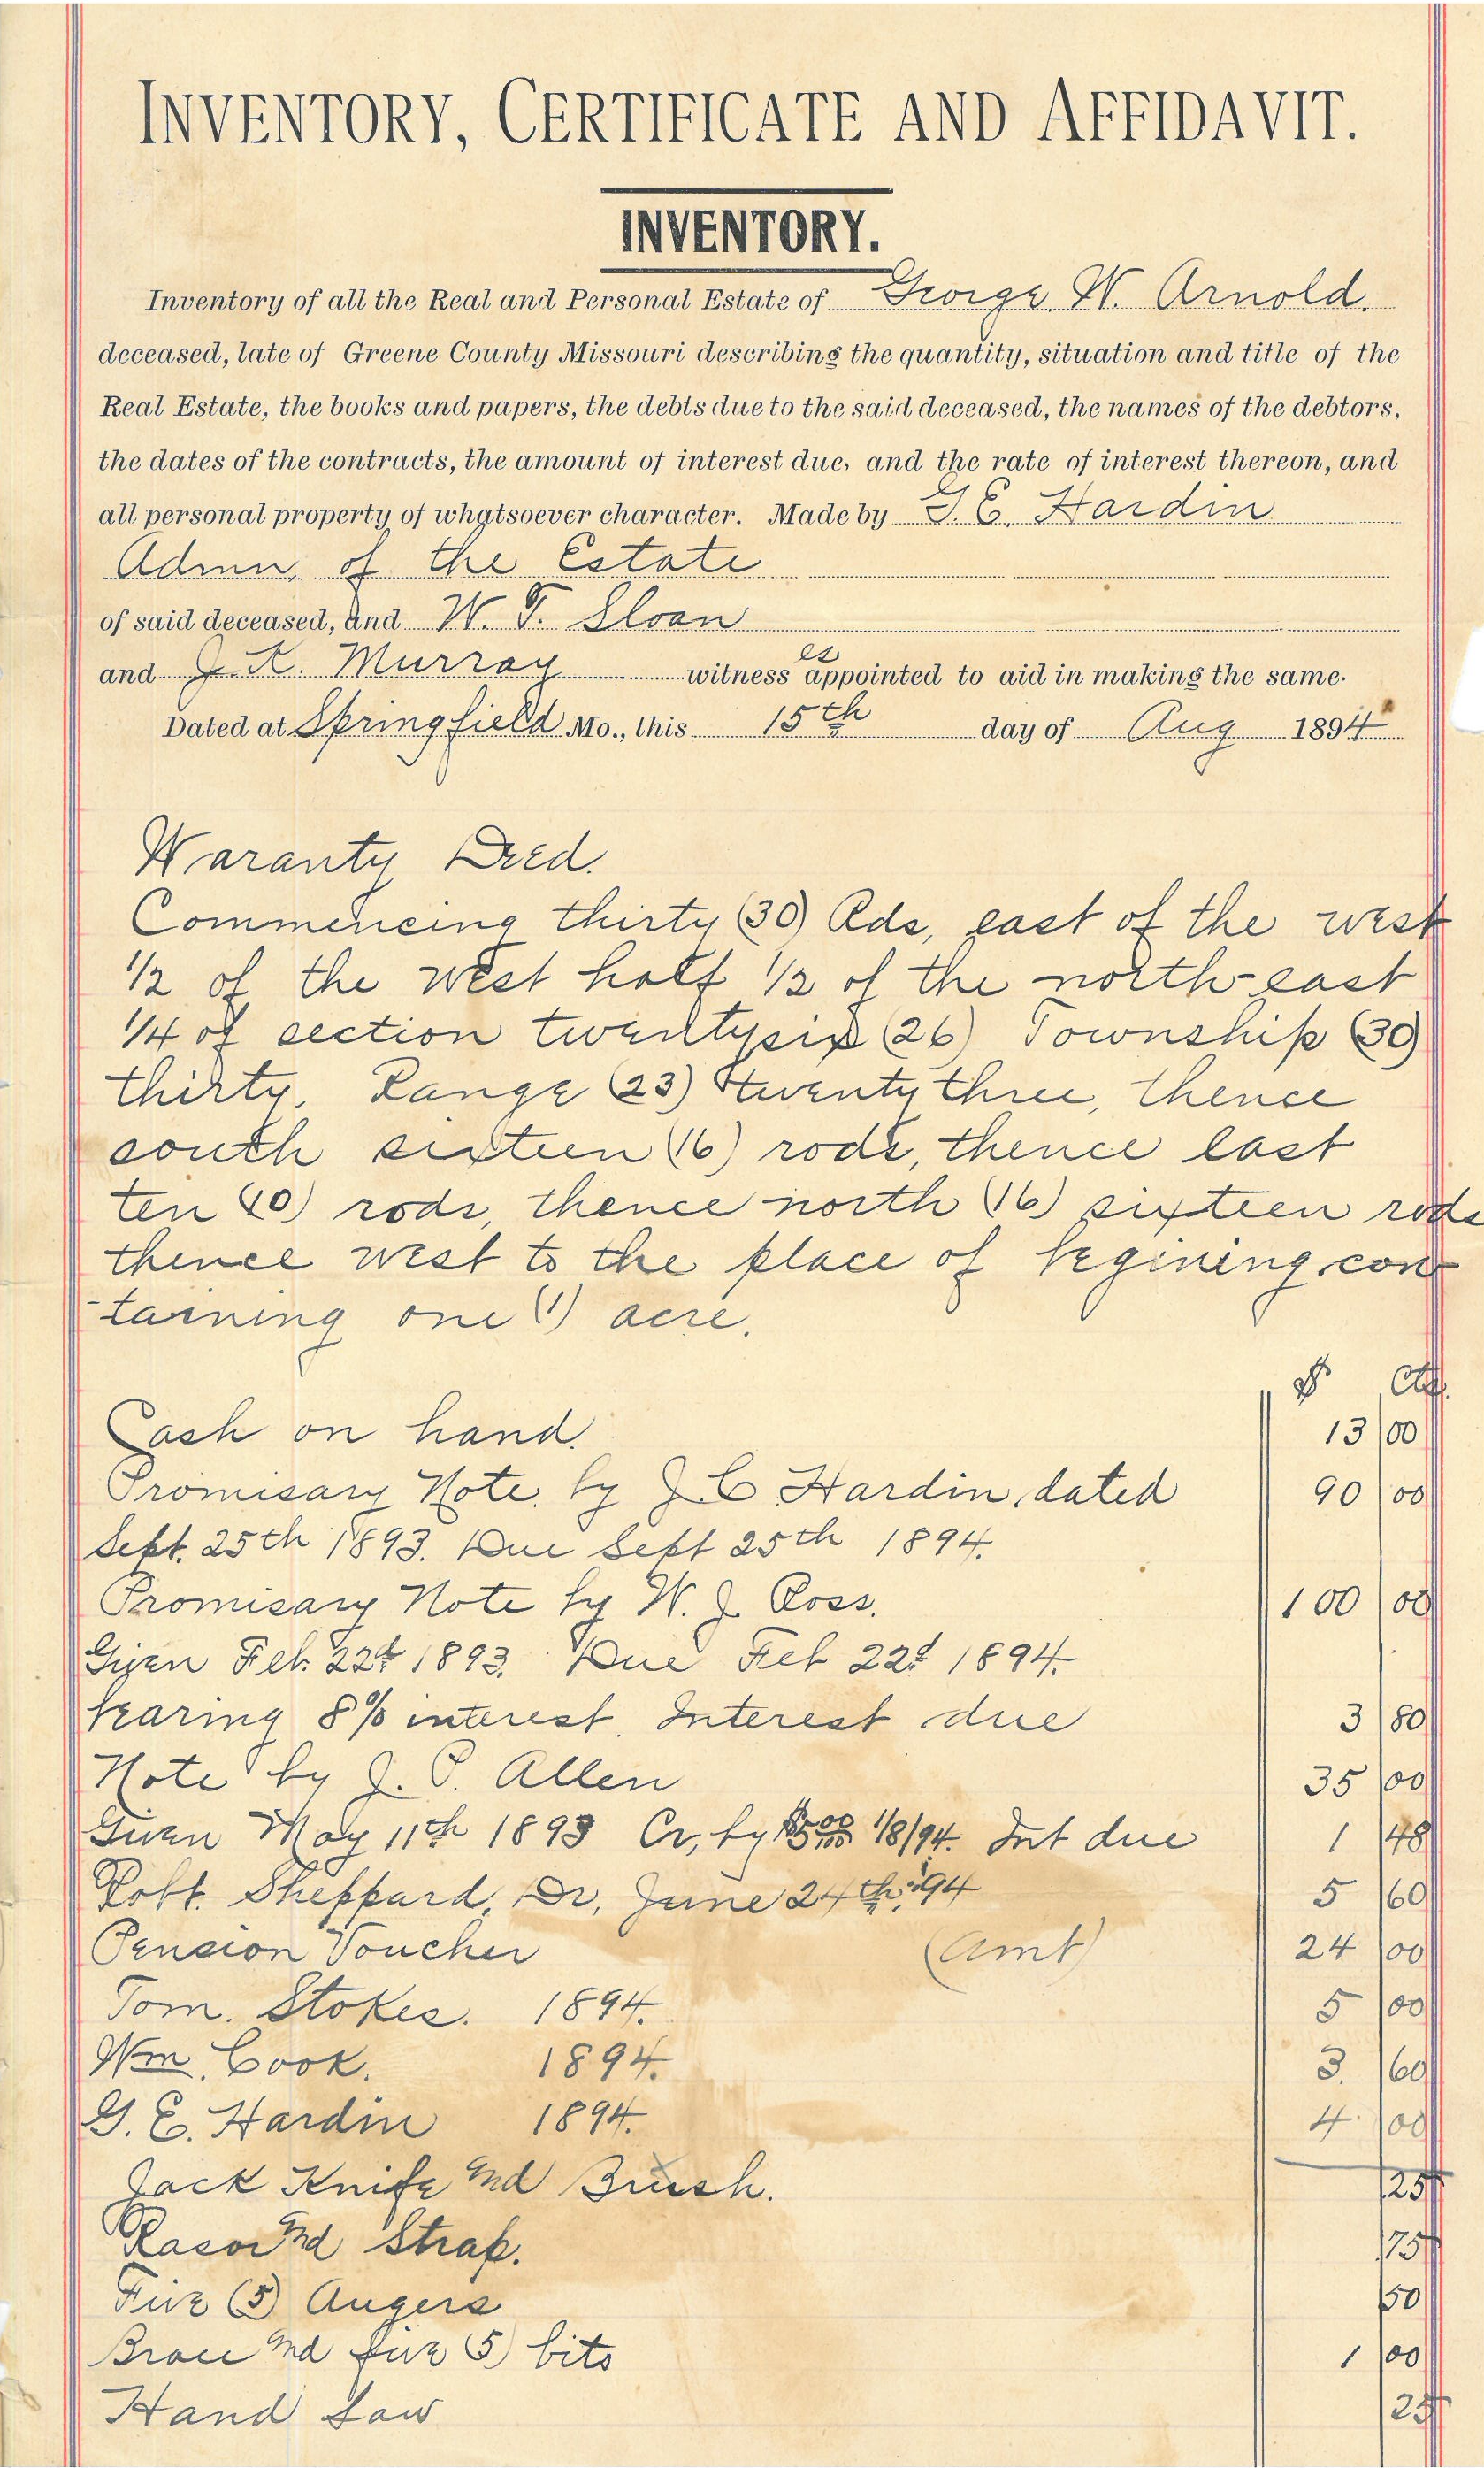 INVENTORY, CERTIFICATE AND AFFIDAVIT.
INVENTORY.
Inventory of all the Real and Personal Estate of George W. Arnold.
deceased, late of Greene County Missouri describing the quantity, situation and title of the
Real Estate, the books and papers, the debts due to the said deceased, the names of the debtors,
the dates of the contracts, the amount of interest due, and the rate of interest thereon, and
all personal property of whatsoever character. Made by G. E. Hardin
Admn, of the Estate
of said deceased, and W. T. Sloan
and J. K. Murray witnesses appointed to aid in making the same.
Dated at Springfield Mo., this 15th day of Aug 1894
Waranty Deed.
Commencing thirty (30) Rds, east of the west
1/2 of the west half 1/2 of the north-east
1/4 of section twentysix (26) Township (30)
thirty. Range (23) twenty three, thence
south sixteen (16) rods, thence east
ten (10) rods, thence north (16) sixteen rods
thence west to the place of begining con-
-taining one (1) acre.
$ Cts.
Cash on hand. 13 00
Promisary Note by J. C. Hardin, dated 90 00
Sept. 25th 1893. Due Sept 25th 1894.
Promisary Note by W. J. Ross. 100 00
Given Feb. 22d 1893. Due Feb 22d 1894.
bearing 8% interest. Interest due 3 80
Note by J. P. Allen 35 00
Given May 11th 1893 Cr, by $5.00 1/8/94. Int due 1 48
Robt. Sheppard, Dr, June 24th '94 5 60
Pension Voucher (Amt) 24 00
Tom. Stokes. 1894. 5 00
Wm. Cook. 1894. 3. 60
G. E. Hardin 1894. 4. 00
Jack Knife and Brush. 25
Rasor and Strap. 75
Five (5) Augers 50
Brace and five (5) bits 1 00
Hand Saw 25